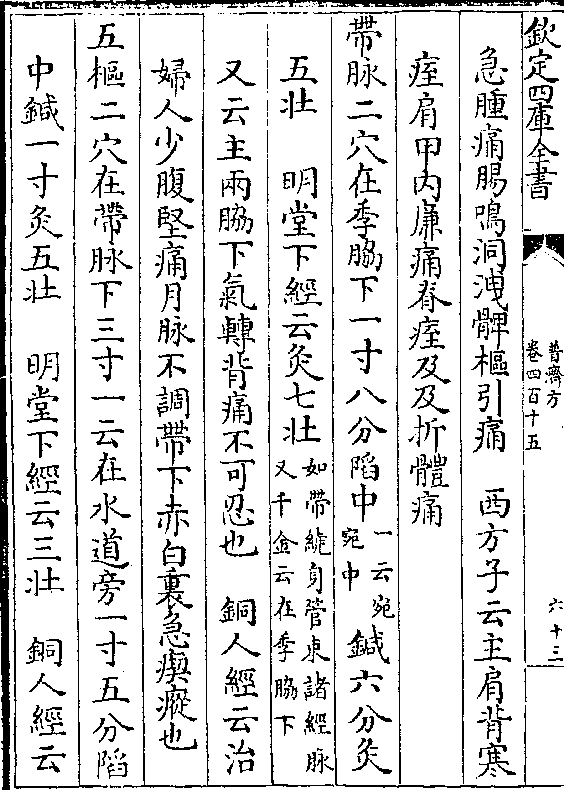 欽定四庫全書
普濟方
卷四百十五
六十三
急腫痛腸鳴洞洩髀樞引痛　西方子云主肩背寒
痓肩甲内廉痛脊痓及及折體痛
帶脉二穴在季脇下一寸八分陷中
一云宛
宛中
鍼六分灸
五壯　明堂下經云灸七壯
如帶繞身管束諸經脉
又千金云在季脇下
又云主兩脇下氣轉背痛不可忍也　銅人經云治
婦人少腹堅痛月脉不調帶下赤白裏急瘈瘲也
五樞二穴在帶脉下三寸一云在水道旁一寸五分陷
中鍼一寸灸五壯　明堂下經云三壯　銅人經云